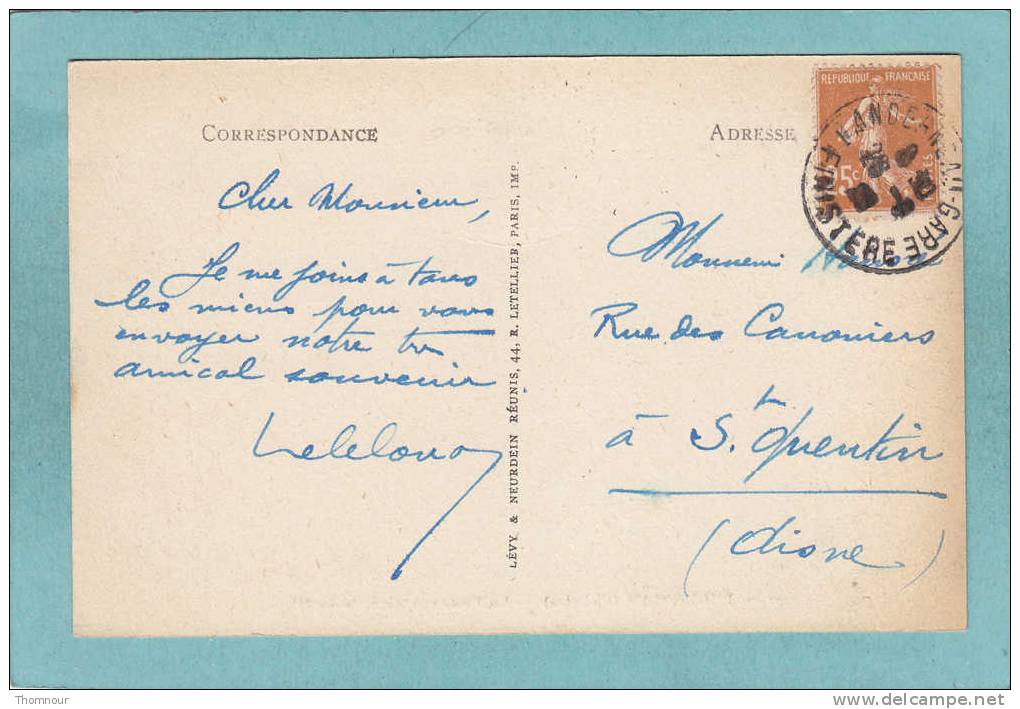 CORRESPONDANCE
Cher Monsieur,
Je me joins à tous
les miens pour vous
envoyer notre très
amical souvenir
LÉVY & NEURDEIN RÉUNIS, 44, R. LETELLIER, PARIS, IMP.
ADRESSE
REPUBLIQUE FRANÇAISE
5c
LANDERNEAU-GARE
FINISTERE
Monsieur
Rue des Canonniers
à St Quentin
(Aisne)
Thomnour
www.delcampe.net